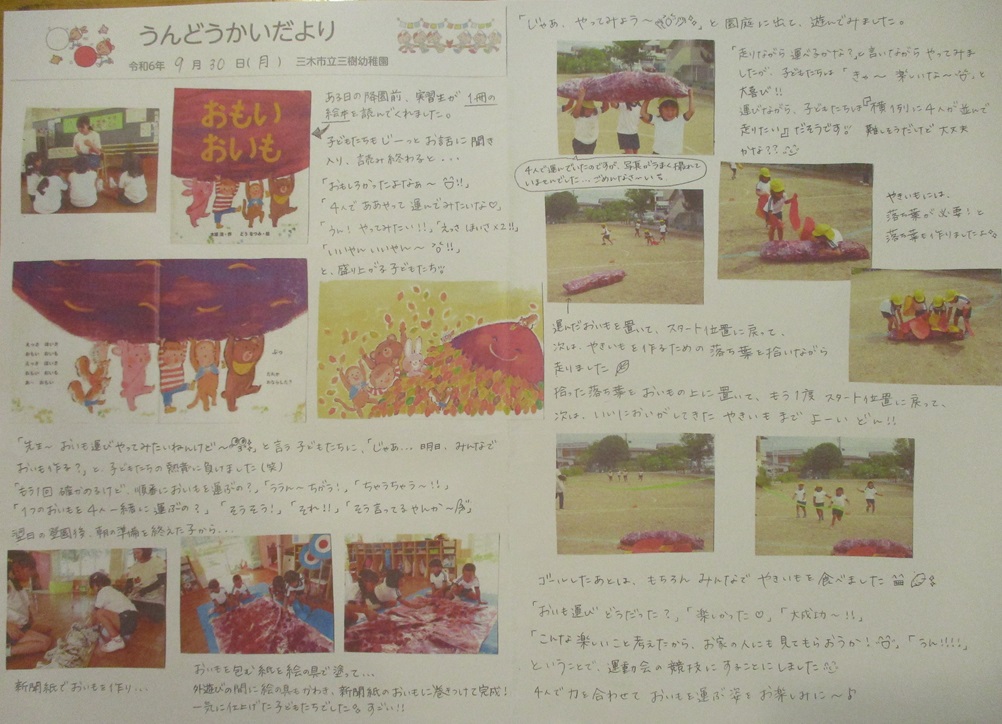 うんどうかいだより
令和6年 9月 30日(月) 三木市立三樹幼稚園
おもい
おいも
ある日の降園前、実習生が 1冊の
絵本を読んでくれました。
子どもたちは じーっと お話に聞き
入り、読み終わると・・・
「おもしろかったよなぁ〜!!」
「4人で ああやって 運んでみたいな♡」
「うん! やってみたい!!」「えっさ ほいさ×2!!」
「いいやん いいやん〜!!」
と、盛り上がる子どもたち
「先生〜 おいも運びやってみたいねんけど〜」と言う 子どもたちに、「じゃあ... 明日、みんなで
おいも作る?」と、子どもたちの 熱意に負けました(笑)
「もう1回 確かめるけど、順番においもを運ぶの?」「ううん〜ちがう!」「ちゃうちゃう〜!!」
「1つのおいもを 4人一緒に 運ぶの?」「そうそう!」「それ!!」「そう言ってるやんか〜」
翌日の登園後、朝の準備を終えた子から・・・
新聞紙でおいもを作り...
おいもを包む紙を絵の具で塗って...
外遊びの間に絵の具もかわき、新聞紙のおいもに巻きつけて完成!
一気に仕上げた子どもたちでした。すごい!!
「じゃあ、やってみよう〜」と 園庭に出て、遊んでみました。
「走りながら 運べるかな?」と言いながら やってみま
したが、子どもたちは「きゃ〜 楽しいな〜」と
大喜び!!
運びながら、子どもたちは『横1列に4人が並んで
走りたい』だそうです 難しそうだけど 大丈夫
かな??
4人で運んでいたのですが、写真がうまく撮れて
いませんでした... ごめんなさーい
やきいもには、
落ち葉が必要!と
落ち葉も作りましたよ。
運んだおいもを置いて、スタート位置に戻って、
次は、やきいもを作るための 落ち葉を拾いながら
走りました
拾った落ち葉を おいもの上に置いて、もう1度 スタート位置に戻って、
次は、いいにおいがしてきた やきいもまで よーい どん!!
ゴールしたあとは、もちろん みんなで やきいもを食べました
「おいも運び どうだった?」「楽しかった♡」「大成功〜!!」
「こんな楽しいこと考えたから、お家の人にも見てもらおうか!」「うん!!!!」
ということで、運動会の競技にすることにしました
4人で力を合わせて おいもを運ぶ姿を お楽しみに〜♪